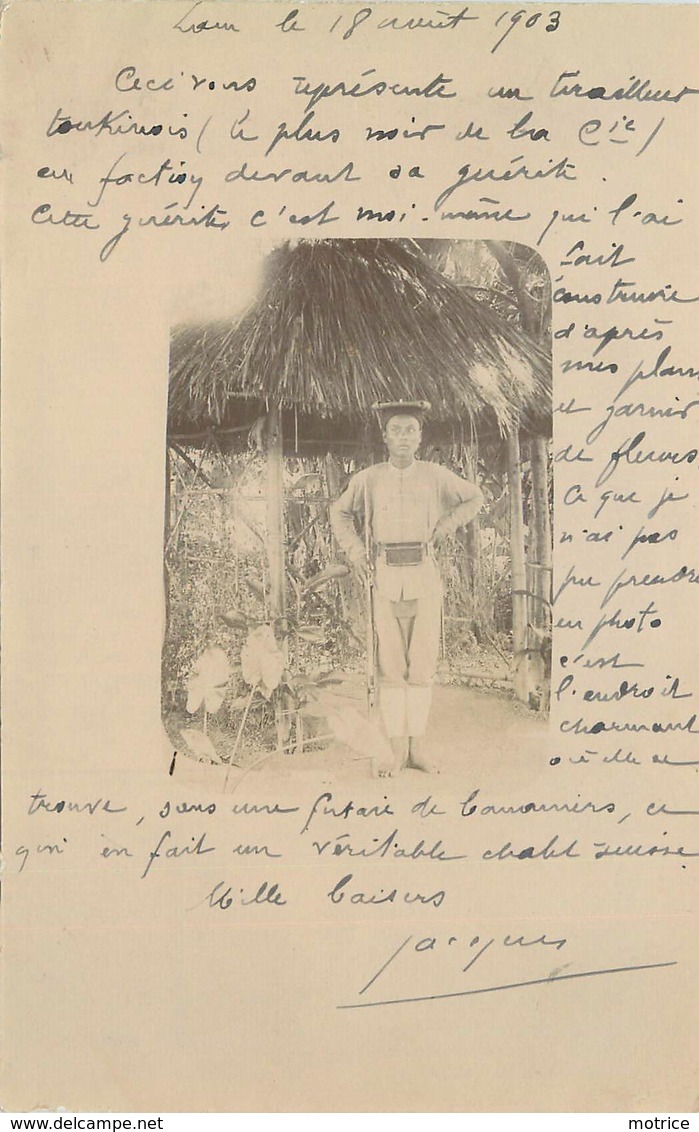 le 18 août 1903
Ceci vous représente un tirailleur
tonkinois (le plus noir de la Cie)
en faction devant sa guérite.
Cette guérite, c'est moi-même qui l'ai
fait
construire
d'après
mes plans
et garnir
de fleurs
Ce que je
n'ai pas
pu prendre
en photo
c'est
l'endroit
charmant
où elle se
trouve, sous une futaie de bananiers, ce
qui en fait un véritable chalet suisse
Mille baisers
Jacques
motrice